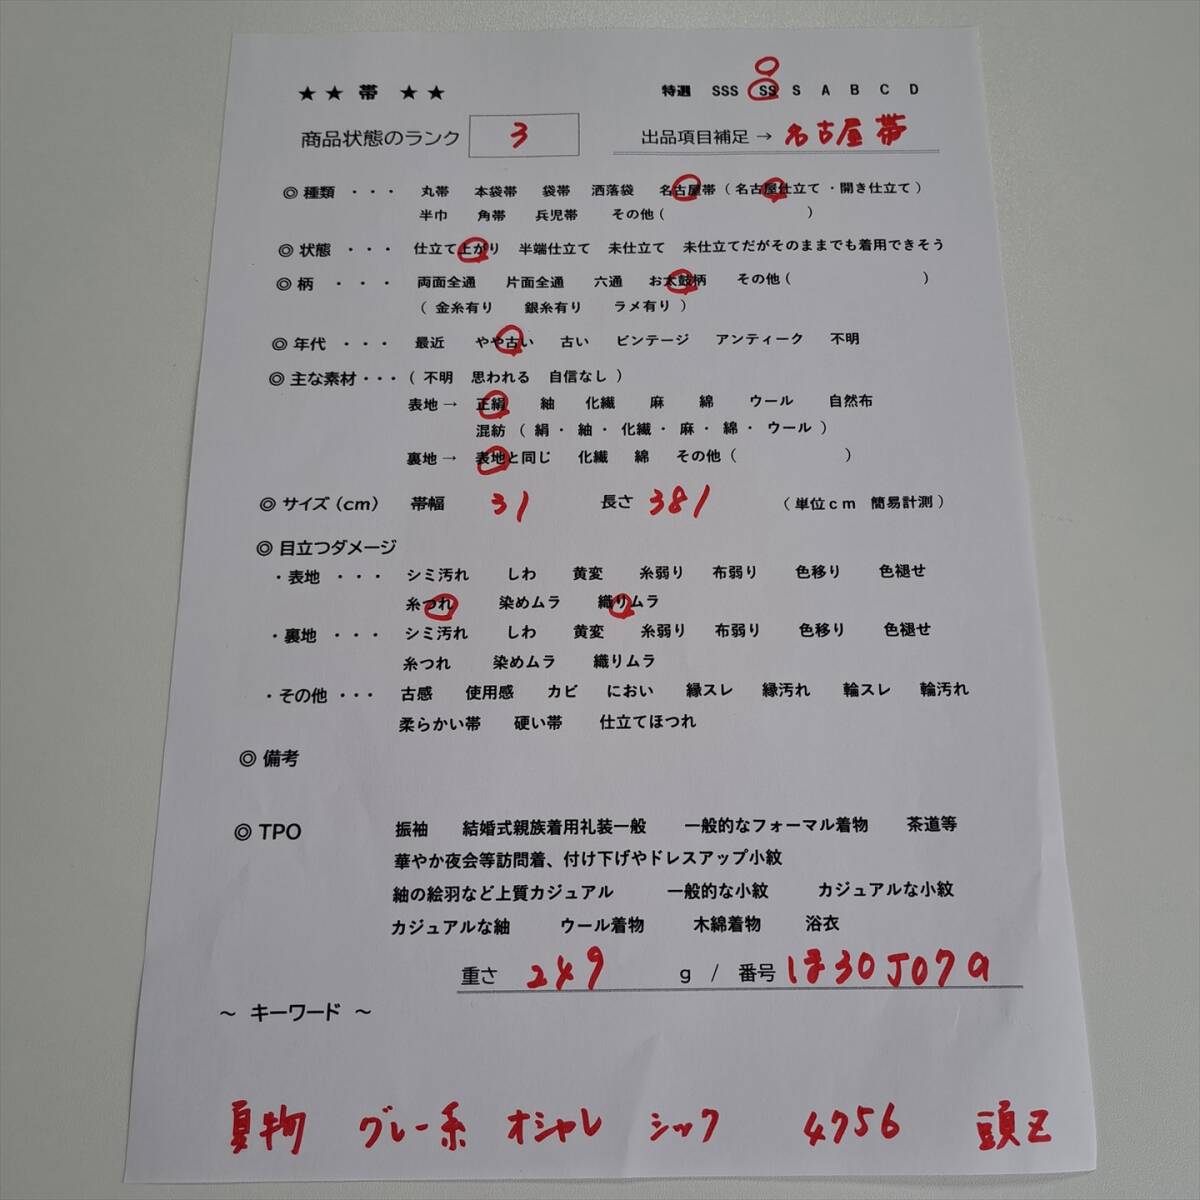 ★★ 帯 ★★ 特選 SSS SS S A B C D
商品状態のランク 3 出品項目補足 → 名古屋帯
◎ 種類 ・・・ 丸帯 本袋帯 袋帯 洒落袋 名古屋帯 ( 名古屋仕立て ・開き仕立て )
半巾 角帯 兵児帯 その他 ( )
◎ 状態 ・・・ 仕立て上がり 半端仕立て 未仕立て 未仕立てだがそのままでも着用できそう
◎ 柄 ・・・ 両面全通 片面全通 六通 お太鼓柄 その他 ( )
( 金糸有り 銀糸有り ラメ有り )
◎ 年代 ・・・ 最近 やや古い 古い ビンテージ アンティーク 不明
◎ 主な素材・・・ ( 不明 思われる 自信なし )
表地 → 正絹 紬 化繊 麻 綿 ウール 自然布
混紡 ( 絹・ 紬・ 化繊・ 麻・ 綿・ ウール )
裏地 → 表地と同じ 化繊 綿 その他 ( )
◎ サイズ (cm) 帯幅 31 長さ 381 ( 単位cm 簡易計測 )
◎ 目立つダメージ
・表地 ・・・ シミ汚れ しわ 黄変 糸弱り 布弱り 色移り 色褪せ
糸つれ 染めムラ 織りムラ
・裏地 ・・・ シミ汚れ しわ 黄変 糸弱り 布弱り 色移り 色褪せ
糸つれ 染めムラ 織りムラ
・その他 ・・・ 古感 使用感 カビ におい 縁スレ 縁汚れ 輪スレ 輪汚れ
柔らかい帯 硬い帯 仕立てほつれ
◎ 備考
◎ TPO 振袖 結婚式親族着用礼装一般 一般的なフォーマル着物 茶道等
華やか夜会等訪問着、付け下げやドレスアップ小紋
紬の絵羽など上質カジュアル 一般的な小紋 カジュアルな小紋
カジュアルな紬 ウール着物 木綿着物 浴衣
重さ 249 g / 番号 ほ30J079
～ キーワード ～
夏物 グレー系 オシャレ シック 4756 頭Z